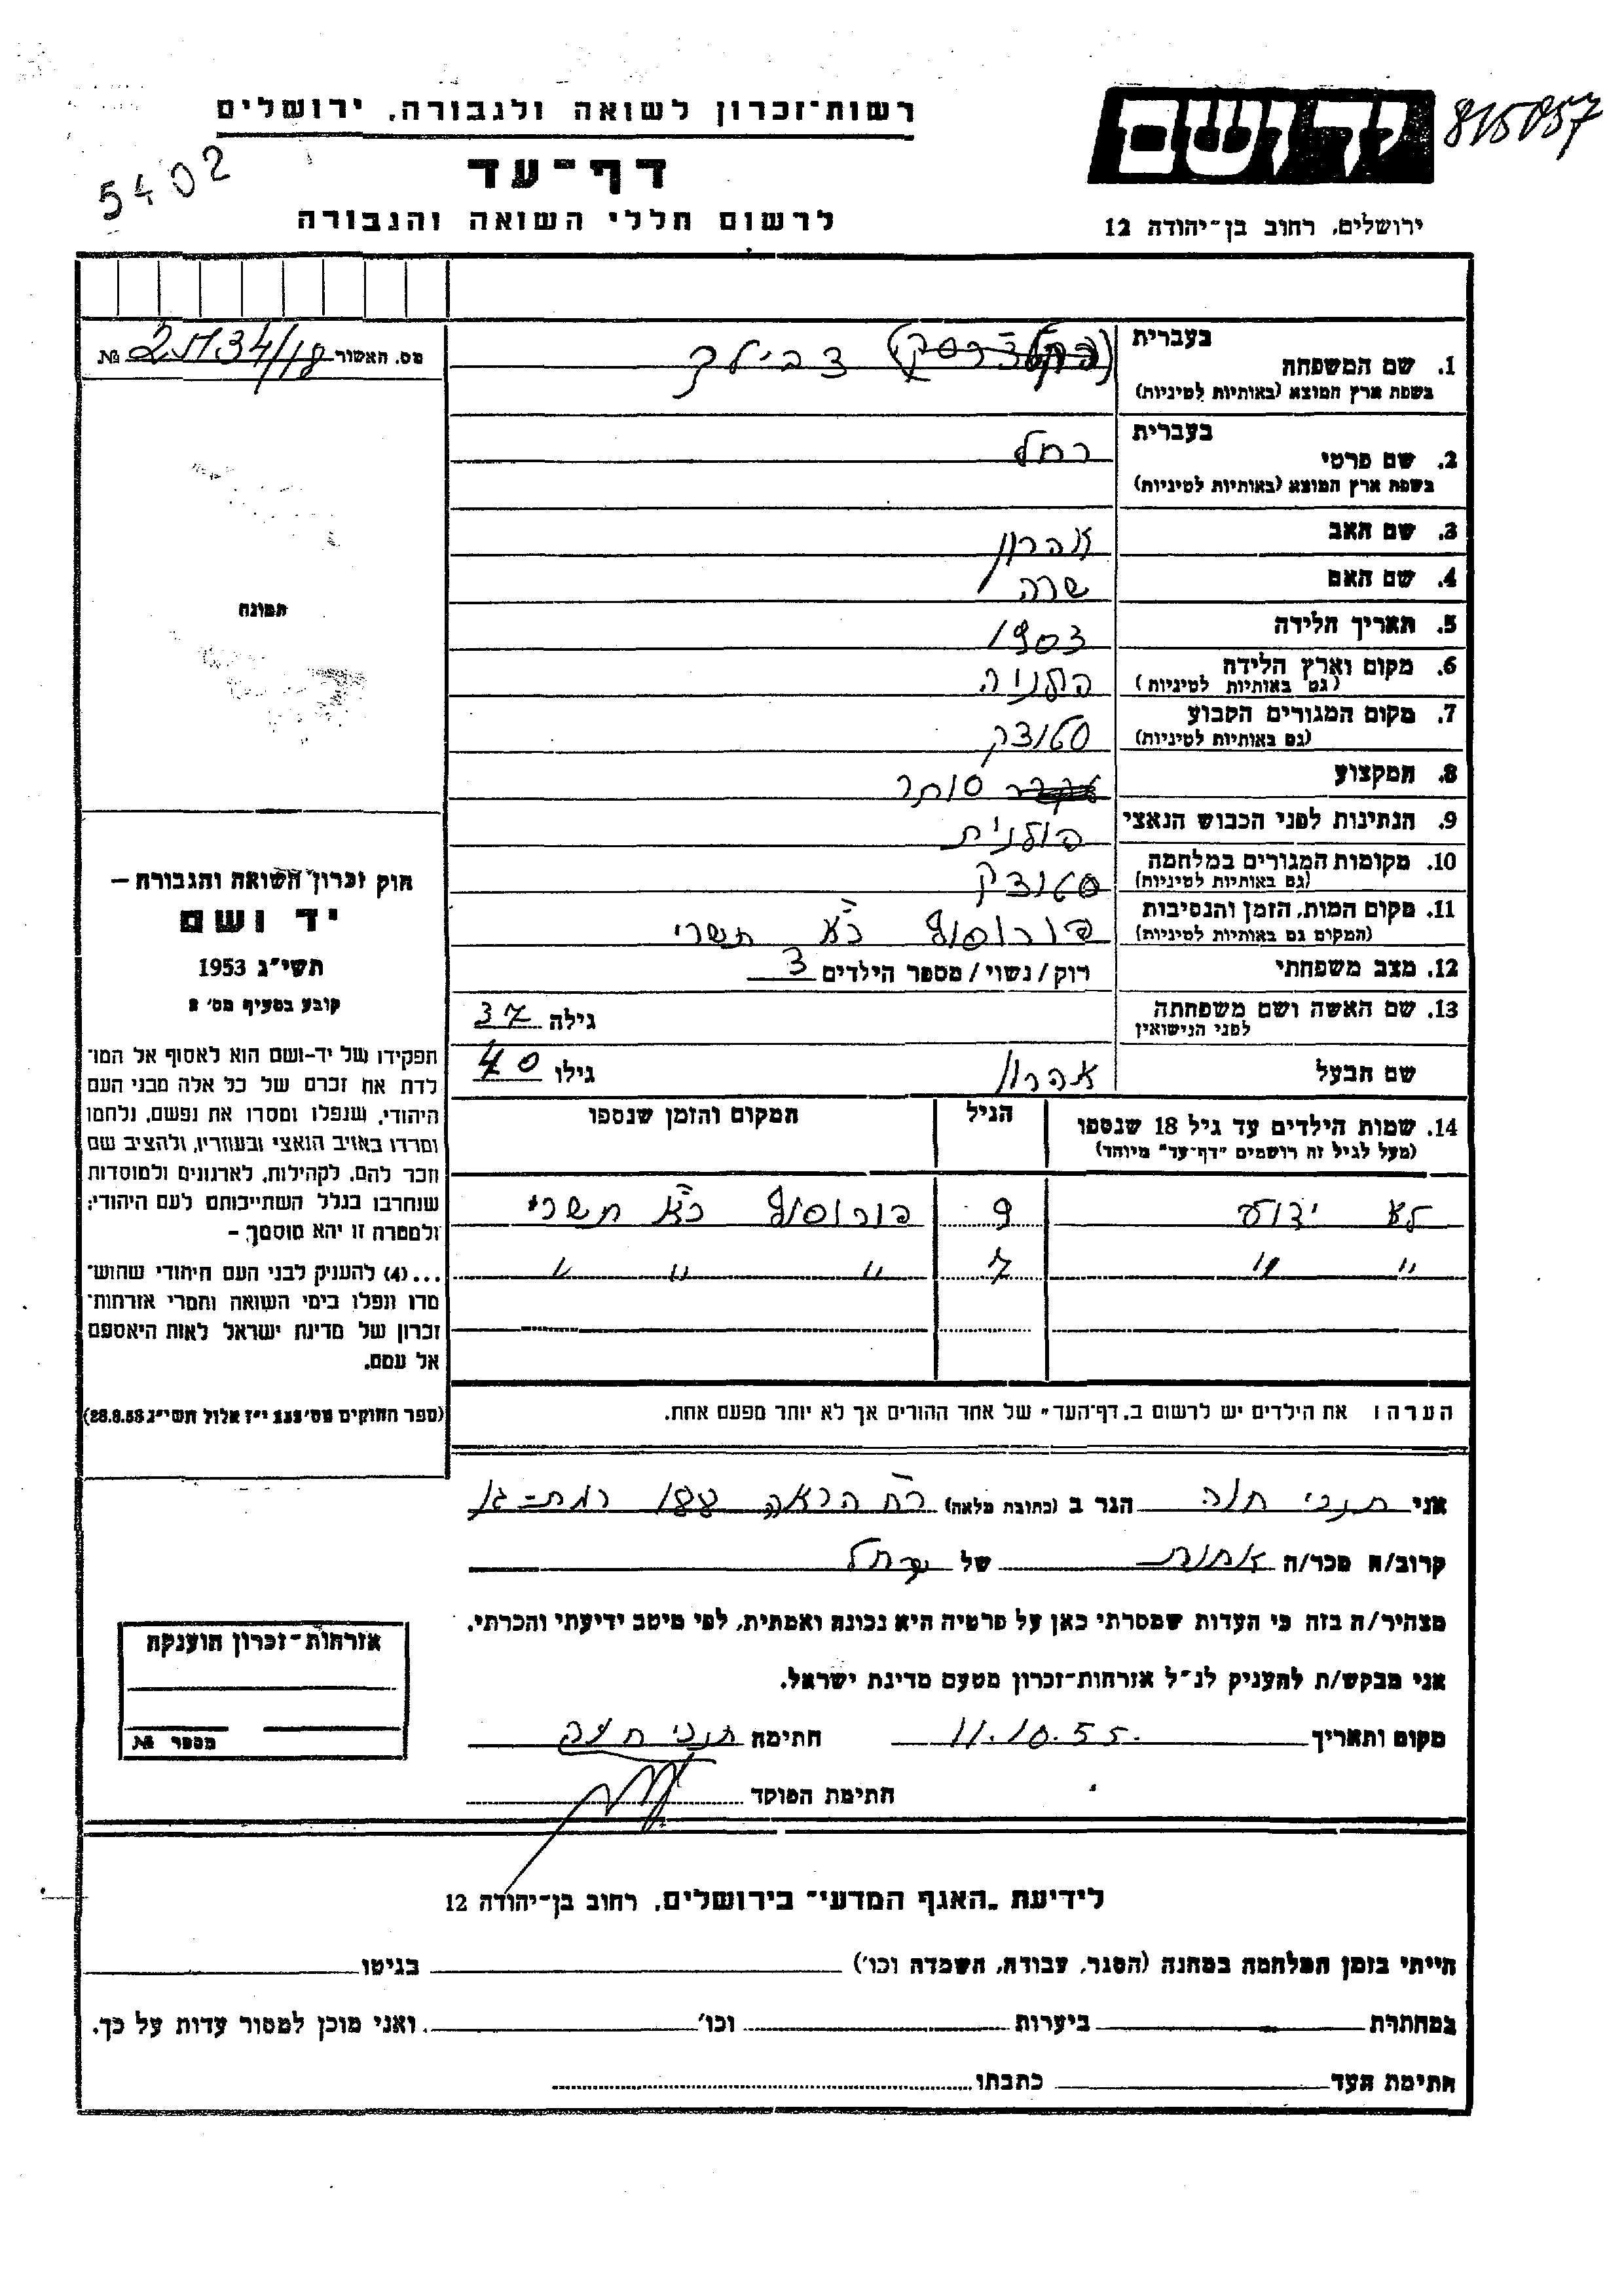 815057
רשות־זכרון לשואה ולגבורה, ירושלים
יד ושם
5402
דף־עד
לרשום חללי השואה והגבורה
ירושלים, רחוב בן־יהודה 12
מס. האשור №
1. שם המשפחה בעברית צבילק
בשפת ארץ המוצא (באותיות לטיניות)
2. שם פרטי בעברית רחל
בשפת ארץ המוצא (באותיות לטיניות)
3. שם האב אהרון
4. שם האם שרה
5. תאריך הלידה 1903
6. מקום וארץ הלידה פולניה
(גם באותיות לטיניות)
7. מקום המגורים הקבוע סטוצק
(גם באותיות לטיניות)
8. המקצוע סוחר
9. הנתינות לפני הכבוש הנאצי פולנית
10. מקומות המגורים במלחמה סטוצק
(גם באותיות לטיניות)
11. מקום המות, הזמן והנסיבות כ"א תשרי
(המקום גם באותיות לטיניות)
12. מצב משפחתי רוק/נשוי/מספר הילדים 3
13. שם האשה ושם משפחתה לפני הנישואין גילה 37
שם הבעל אהרון גילו 40
14. שמות הילדים עד גיל 18 שנספו הגיל המקום והזמן שנספו
(מעל לגיל זה רושמים "דף־עד" מיוחד)
לא ידוע 9 כ"א תשרי
" " 7 " " "
הערה: את הילדים יש לרשום ב"דף־העד" של אחד ההורים אך לא יותר מפעם אחת.
תמונה
חוק זכרון השואה והגבורה —
יד ושם
תשי"ג 1953
קובע בסעיף מס' 2
תפקידו של יד־ושם הוא לאסוף אל המו־
לדת את זכרם של כל אלה מבני העם
היהודי, שנפלו ומסרו את נפשם, נלחמו
ומרדו באויב הנאצי ובעוזריו, ולהציב שם
וזכר להם, לקהילות, לארגונים ולמוסדות
שנחרבו בגלל השתייכותם לעם היהודי;
ולמטרה זו יהא מוסמך —
...(4) להעניק לבני העם היהודי שהוש־
מדו ונפלו בימי השואה והמרי אזרחות־
זכרון של מדינת ישראל לאות היאספם
אל עמם.
(ספר החוקים מס' 132 י"ז אלול תשי"ג 28.8.53)
אני חנה הגר ב (כתובת מלאה) רח הרא"ה רמת־גן
קרוב/ה מכר/ה אחות של רחל
מצהיר/ה בזה כי העדות שמסרתי כאן על פרטיה היא נכונה ואמתית, לפי מיטב ידיעתי והכרתי.
אני מבקש/ת להעניק לנ"ל אזרחות־זכרון מטעם מדינת ישראל.
מקום ותאריך 11.10.55 חתימה
חתימת הפוקד
אזרחות־זכרון הוענקה
מספר №
לידיעת "האגף המדעי" בירושלים, רחוב בן־יהודה 12
הייתי בזמן המלחמה במחנה (הסגר, עבודה, השמדה וכו') בגיטו
במחתרת ביערות וכו' ואני מוכן למסור עדות על כך.
חתימת העד כתבתו